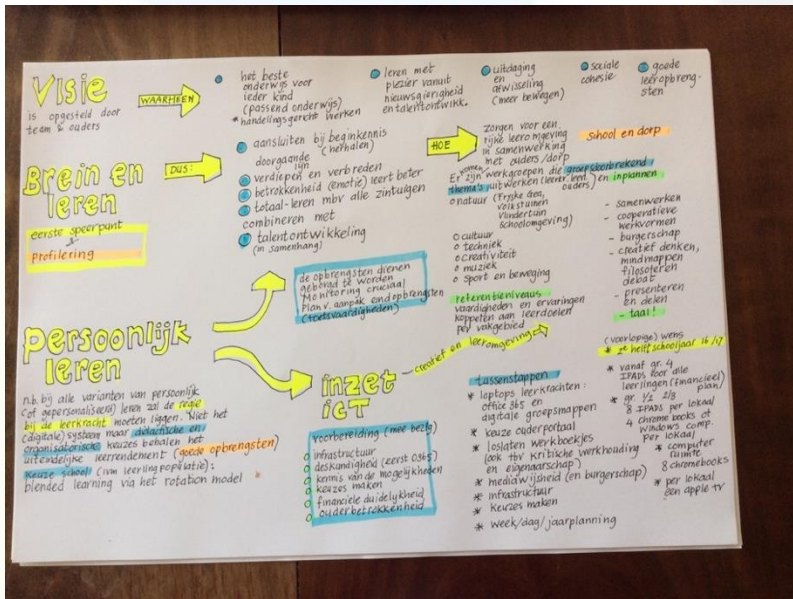 Visie
is opgesteld door
team & ouders
WAARHEEN
het beste
onderwijs voor
ieder kind
(passend onderwijs)
*handelingsgericht werken
leren met
plezier vanuit
nieuwsgierigheid
en talentontwikk.
uitdaging
en
afwisseling
(meer bewegen)
sociale
cohesie
goede
leeropbreng-
sten
Brein en
leren
eerste speerpunt
&
profilering
DUS:
aansluiten bij beginkennis
(herhalen)
doorgaande
lijn
verdiepen en verbreden
betrokkenheid (emotie) leert beter
totaal-leren mbv alle zintuigen
combineren met
talentontwikkeling
(in samenhang)
HOE
zorgen voor een
rijke leeromgeving
in samenwerking
met ouders/dorp
school en dorp
komen
Er zijn werkgroepen die groepsdoorbrekend
thema's uitwerken (leerkr. leerl. ouders) en inplannen
o natuur (Fryske Gea,
volkstuinen
vlindertuin
schoolomgeving)
o cultuur
o techniek
o creativiteit
o muziek
o sport en beweging
- samenwerken
- cooperatieve
werkvormen
- burgerschap
- creatief denken,
mindmappen
filosoferen
debat
- presenteren
en delen
- taal!
referentieniveaus
vaardigheden en ervaringen
koppelen aan leerdoelen
per vakgebied
de opbrengsten dienen
geborgd te worden
Monitoring cruciaal
Plan v. aanpak eindopbrengsten
(toetsvaardigheden)
persoonlijk
leren
n.b. bij alle varianten van persoonlijk
(of gepersonaliseerd) leren zal de regie
bij de leerkracht moeten liggen. Niet het
(digitale) systeem maar didactische en
organisatorische keuzes behalen het
uiteindelijke leerrendement (goede opbrengsten)
Keuze school (ivm leerlingpopulatie):
blended learning via het rotation model
inzet
ICT
creatief en leeromgeving
voorbereiding (mee bezig)
o infrastructuur
o deskundigheid (eerst O365)
o kennis van de mogelijkheden
o keuzes maken
o financiële duidelijkheid
o ouderbetrokkenheid
tussenstappen
* laptops leerkrachten:
office 365 en
digitale groepsmappen
* keuze ouderportaal
* loslaten werkboekjes
(ook tbv kritische werkhouding
en eigenaarschap)
* mediawijsheid (en burgerschap)
* infrastructuur
* keuzes maken
* week/dag/jaarplanning
(voorlopige) wens
* 2e helft schooljaar 16/17
* vanaf gr. 4
IPADS voor alle
leerlingen (financieel
plan)
* gr. 1/2 2/3
8 IPADS per lokaal
4 chromebooks of
windows comp.
per lokaal
* computer
ruimte
8 chromebooks
* per lokaal
een apple tv